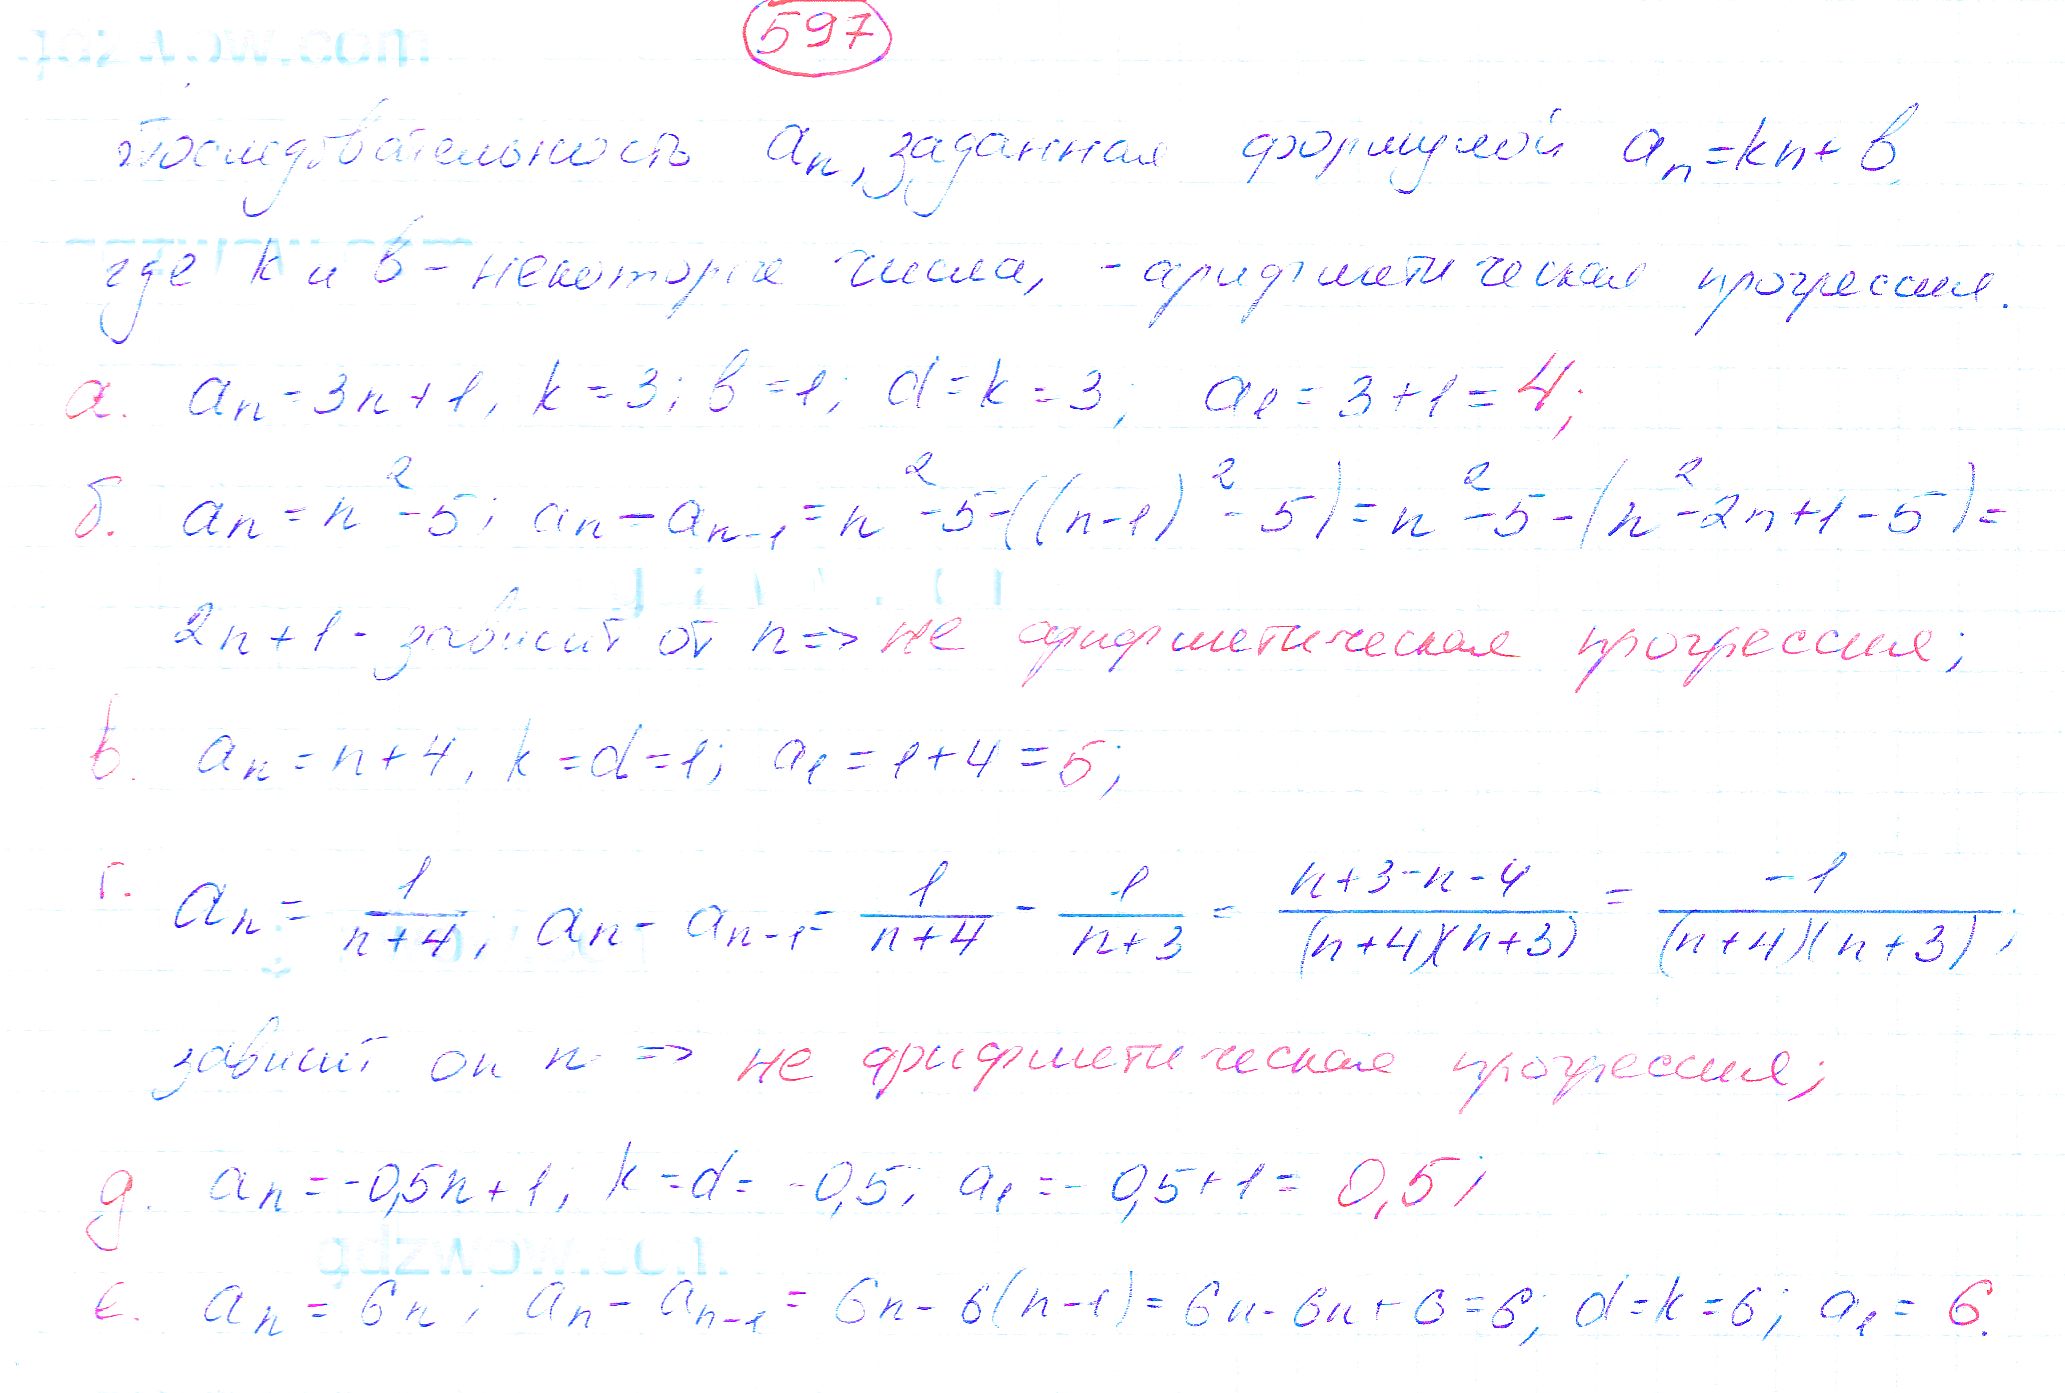 597
Последовательность aₙ, заданная формулой aₙ=kn+b,
где k и b - некоторые числа, - арифметическая прогрессия.
а. aₙ=3n+1, k=3; b=1; d=k=3; a₁=3+1=4;
б. aₙ=n²-5; aₙ-aₙ₋₁=n²-5-((n-1)²-5)=n²-5-(n²-2n+1-5)=
2n+1 - зависит от n => не арифметическая прогрессия;
в. aₙ=n+4, k=d=1; a₁=1+4=5;
г. aₙ=1/(n+4); aₙ-aₙ₋₁=1/(n+4)-1/(n+3)=(n+3-n-4)/((n+4)(n+3))=-1/((n+4)(n+3));
зависит он n => не арифметическая прогрессия;
д. aₙ=-0,5n+1, k=d=-0,5; a₁=-0,5+1=0,5;
е. aₙ=6n; aₙ-aₙ₋₁=6n-6(n-1)=6n-6n+6=6; d=k=6; a₁=6.